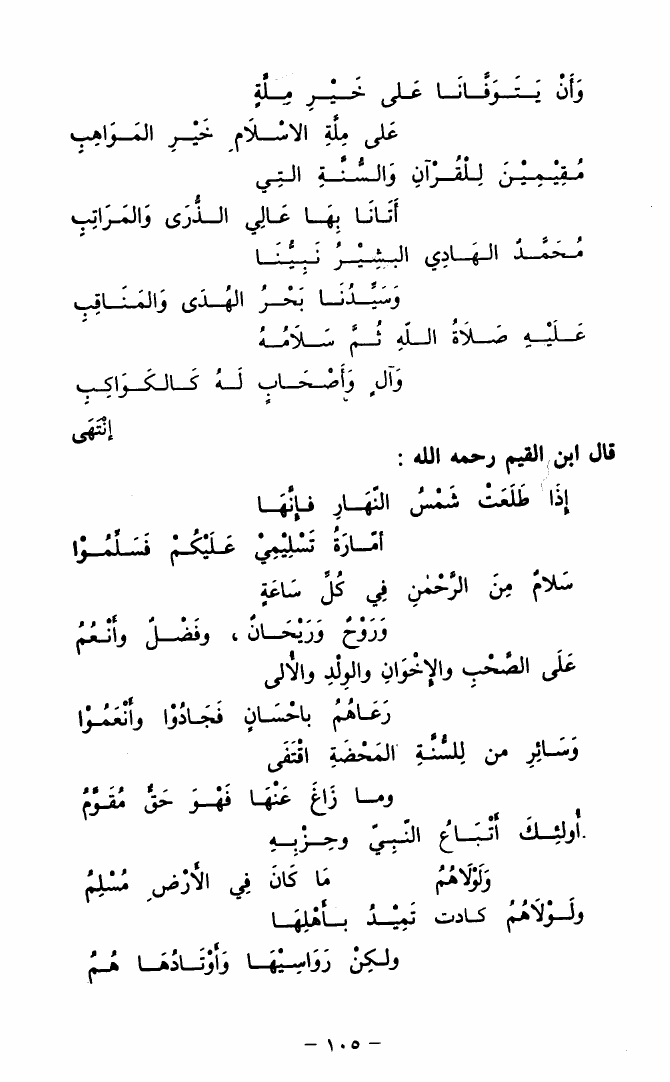 وَأَنْ يَتَوَفَّانَا عَلى خَيْرِ مِلَّةٍ
عَلى مِلَّةِ الاسْلَامِ خَيْرِ المَوَاهِبِ
مُقِيْمِيْنَ لِلْقُرْآنِ وَالسُّنَّةِ التِي
أَتَانَا بِهَا عَالِي الذُّرَى وَالمَرَاتِبِ
مُحَمَّدُ الهَادِي البَشِيْرُ نَبِيُّنَا
وَسَيِّدُنَا بَحْرُ الهُدَى وَالمَنَاقِبِ
عَلَيْهِ صَلَاةُ اللّهِ ثُمَّ سَلَامُهُ
وَآلٍ وَأَصْحَابٍ لَهُ كَالكَوَاكِبِ
إنْتَهَى
قال ابن القيم رحمه الله :
إِذَا طَلَعَتْ شَمْسُ النَّهَارِ فَإِنَّهَا
أمَارَةُ تَسْلِيْمِيْ عَلَيْكُمْ فَسَلِّمُوْا
سَلامٌ مِنَ الرَّحْمٰنِ فِي كُلِّ سَاعَةٍ
وَرَوْحٌ وَرَيْحَانٌ ، وفَضْلٌ وأَنْعُمُ
عَلَى الصَّحْبِ والإِخْوَانِ والوِلْدِ والأُلى
رَعَاهُمْ باحْسَانٍ فَجَادُوْا وأَنْعَمُوْا
وَسَائِرِ من لِلسُّنَّةِ المَحْضَةِ اقْتَفَى
وما زَاغَ عَنْهَا فَهْوَ حَقٌّ مُقَوَّمُ
أُولئِكَ أَتْبَاعُ النَّبِيّ وحِزْبِهِ
وَلَوْلَاهُمُ مَا كَانَ فِي الأَرْضِ مُسْلِمُ
ولَوْلَاهُمُ كادت تَمِيْدُ بأَهْلِهَا
ولكِنْ رَوَاسِيْهَا وَأَوْتَادُهَا هُمُ
- ١٠٥ -